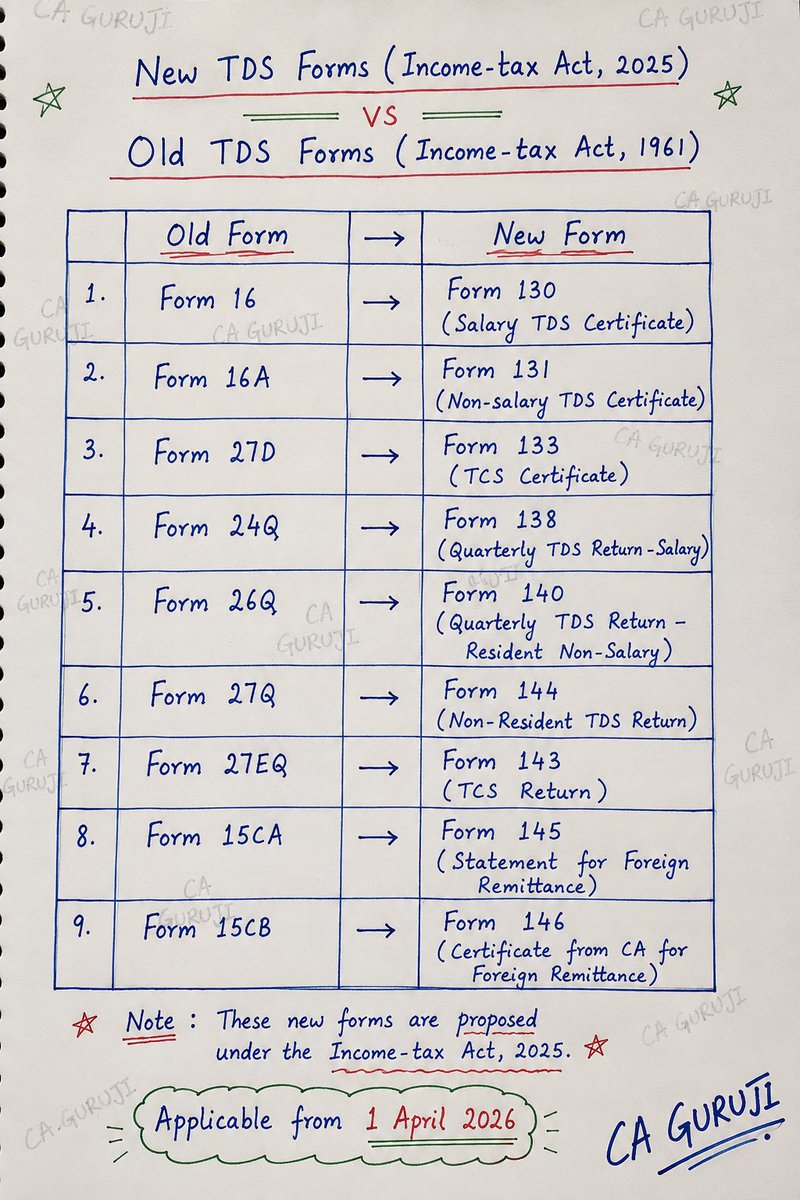 CA GURUJI
CA GURUJI
New TDS Forms (Income-tax Act, 2025)
VS
Old TDS Forms (Income-tax Act, 1961)
CA GURUJI
Old Form → New Form
1. Form 16 → Form 130
(Salary TDS Certificate)
CA
GURUJI
CA GURUJI
2. Form 16A → Form 131
(Non-salary TDS Certificate)
3. Form 27D → Form 133
(TCS Certificate)
CA GURUJI
4. Form 24Q → Form 138
(Quarterly TDS Return-Salary)
CA
GURUJI
5. Form 26Q → Form 140
(Quarterly TDS Return -
Resident Non-Salary)
CA
GURUJI
6. Form 27Q → Form 144
(Non-Resident TDS Return)
7. Form 27EQ → Form 143
(TCS Return)
CA
GURUJI
CA
GURUJI
8. Form 15CA → Form 145
(Statement for Foreign
Remittance)
CA
GURUJI
9. Form 15CB → Form 146
(Certificate from CA for
Foreign Remittance)
Note : These new forms are proposed
under the Income-tax Act, 2025.
CA GURUJI
Applicable from 1 April 2026
CA GURUJI
CA GURUJI